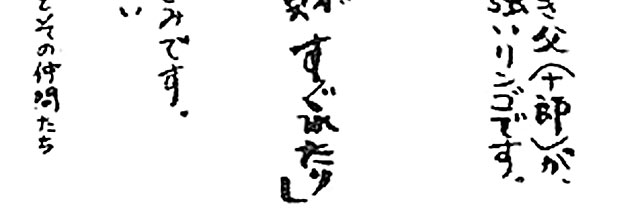 き父(十郎)が、
強いリンゴです。
がすぐれたり」
みです。
い
とその仲間たち